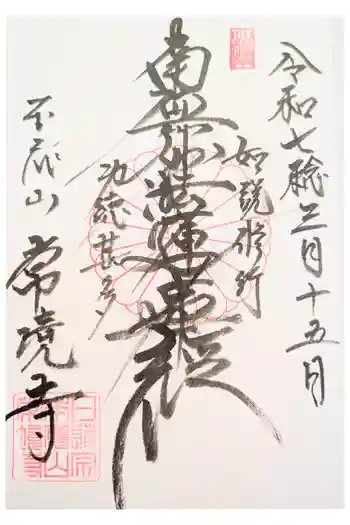 令和七稔三月十五日
如説修行
南無妙法蓮華経
功徳甚多
常境寺